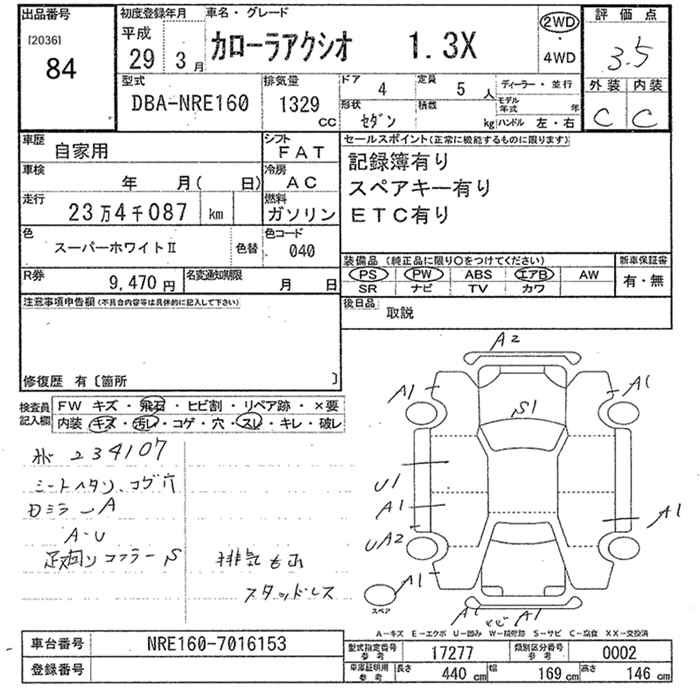 出品番号
[2036]
84
初度登録年月
平成
29 3月
車名・グレード
カローラアクシオ 1.3X
2WD
・
4WD
評価点
3.5
外装 内装
C C
型式
DBA-NRE160
排気量
1329
cc
ドア 4
定員 5 人
形状 セダン
積載 kg
ディーラー・並行
モデル年式 年
ハンドル 左・右
車歴
自家用
シフト
FAT
車検
年 月( 日)
冷房
AC
走行
23万4千087 km
燃料
ガソリン
色
スーパーホワイトⅡ
色替
色コード
040
R券
9,470 円
名変通知期限
月 日
セールスポイント(正常に機能するものに限ります)
記録簿有り
スペアキー有り
ETC有り
装備品(純正品に限り○をつけてください)
PS PW ABS エアB AW
SR ナビ TV カワ
新車保証書
有・無
後日品
取説
注意事項申告欄(不具合内容等は具体的に記入して下さい)
修復歴 有〔箇所 〕
検査員
記入欄
FW キズ・飛石・ヒビ割・リペア跡・×要
内装 キズ・汚レ・コゲ・穴・スレ・キレ・破レ
234107
シートヘタリ、コゲ穴
ミラーA
A-U
S
排気もれ
スタッドレス
A2
A1
A1
S1
U1
A1
UA2
A1
A1
スペア
A1
A1
A-キズ E-エクボ U-凹み W-補修跡 S-サビ C-腐食 XX-交換済
車台番号
NRE160-7016153
登録番号
型式指定番号
参考
17277
類別区分番号
参考
0002
車庫証明用
参考
長さ 440 cm
幅 169 cm
高さ 146 cm